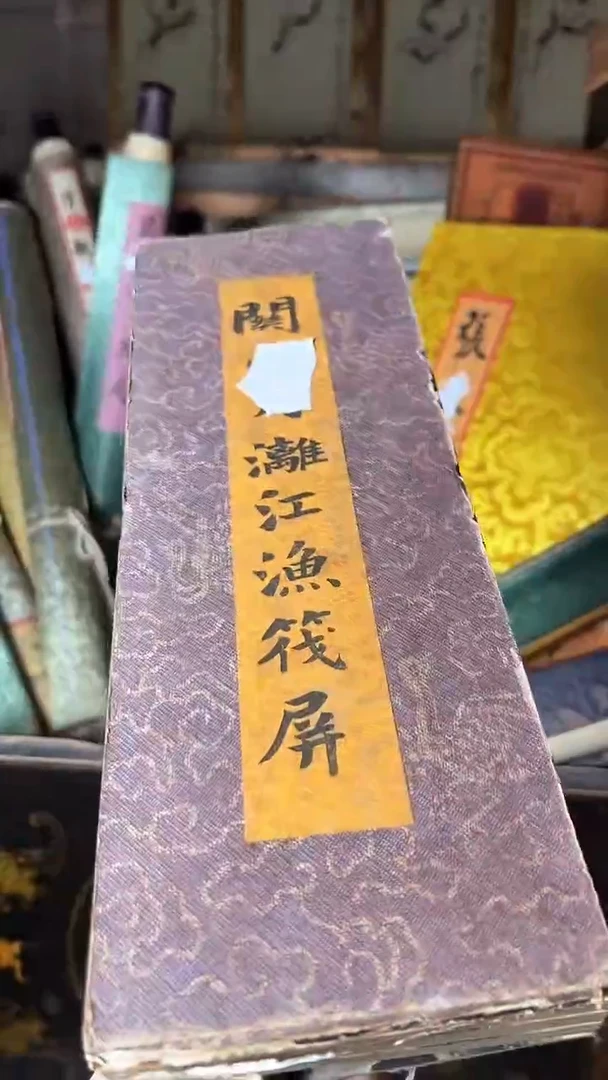 關
灕江漁筏屏
張